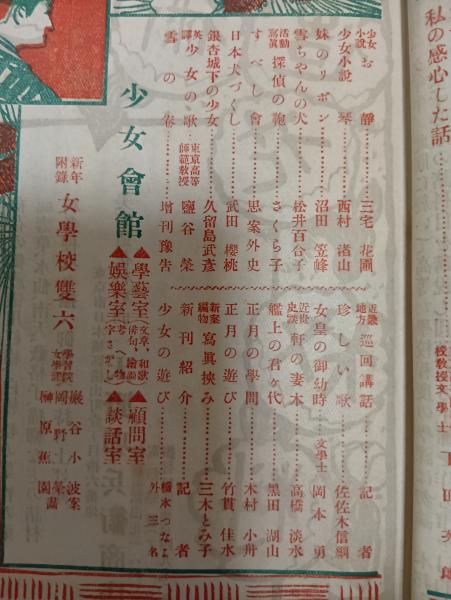 私の感心した話
校教授文學士
近畿地方 巡回講話 記者
珍しい歌 佐佐木信綱
女皇の御幼時 文學士 岡本勇
近世史談 軒の妻木 高橋淡水
艦上の君が代 黒田湖山
正月の學問 木村小舟
正月の遊び 竹貫佳水
新案編物 寫眞挾み 三木とみ子
新刊紹介 記者
少女の遊び 橋本つなよ 外三名
少女小説 お靜 三宅花圃
少女小説 琴 西村渚山
妹のリボン 沼田笠峰
雪ちやんの犬 松井百合子
活動寫眞 探偵の鞄 さくら子
すべし會 思案外史
日本犬づくし 武田櫻桃
銀杏城下の少女 久留島武彦
英譯 少女の歌 東京高等師範敎授 鹽谷榮
雪の春 增刊豫告
少女會館
▲學藝室 ▲顧問室
▲娯樂室 ▲談話室
新年附錄 女學校雙六
學習院女學部 巖谷小波案
岡野榮
榊原蕉園 畵